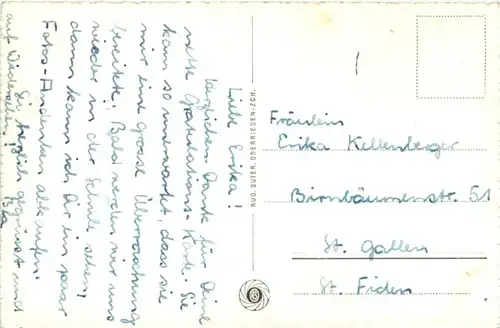 Liebe Erika!
Herzlichen Dank für Deine
nette Gratulations-Karte. Sie
kam so unerwartet, dass sie
mir eine grosse Überraschung
bereitete. Bald werden wir uns
wieder in der Schule sehen,
dann kann ich Dir ein paar
Fotos-Andenken abkaufen.
Sei herzlich gegrüsst und
auf Wiedersehen!
RUD. SUTER, OBERRIEDEN-ZCH.
Fräulein
Erika Kellenberger
Birnbäumenstr. 51
St. Gallen
St. Fiden